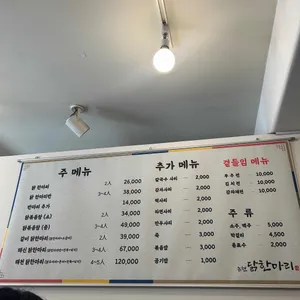 주 메뉴
닭 한마리 2인 26,000
닭 한마리반 3~4인 38,000
반마리 추가 14,000
닭볶음탕 (소) 2인 34,000
닭볶음탕 (중) 3~4인 49,000
갈비 닭한마리 2인 39,000
해신 닭한마리 3~4인 67,000
해천 닭한마리 4~5인 120,000
추가 메뉴
칼국수 사리 2,000
감자사리 2,000
떡사리 2,000
라면사리 2,000
만두사리 2,000
죽 3,000
볶음밥 3,000
공기밥 1,000
곁들임 메뉴
부추전 10,000
김치전 10,000
감자채전 10,000
주 류
소주, 맥주 5,000
막걸리 4,500
음료수 2,000
닭한마리